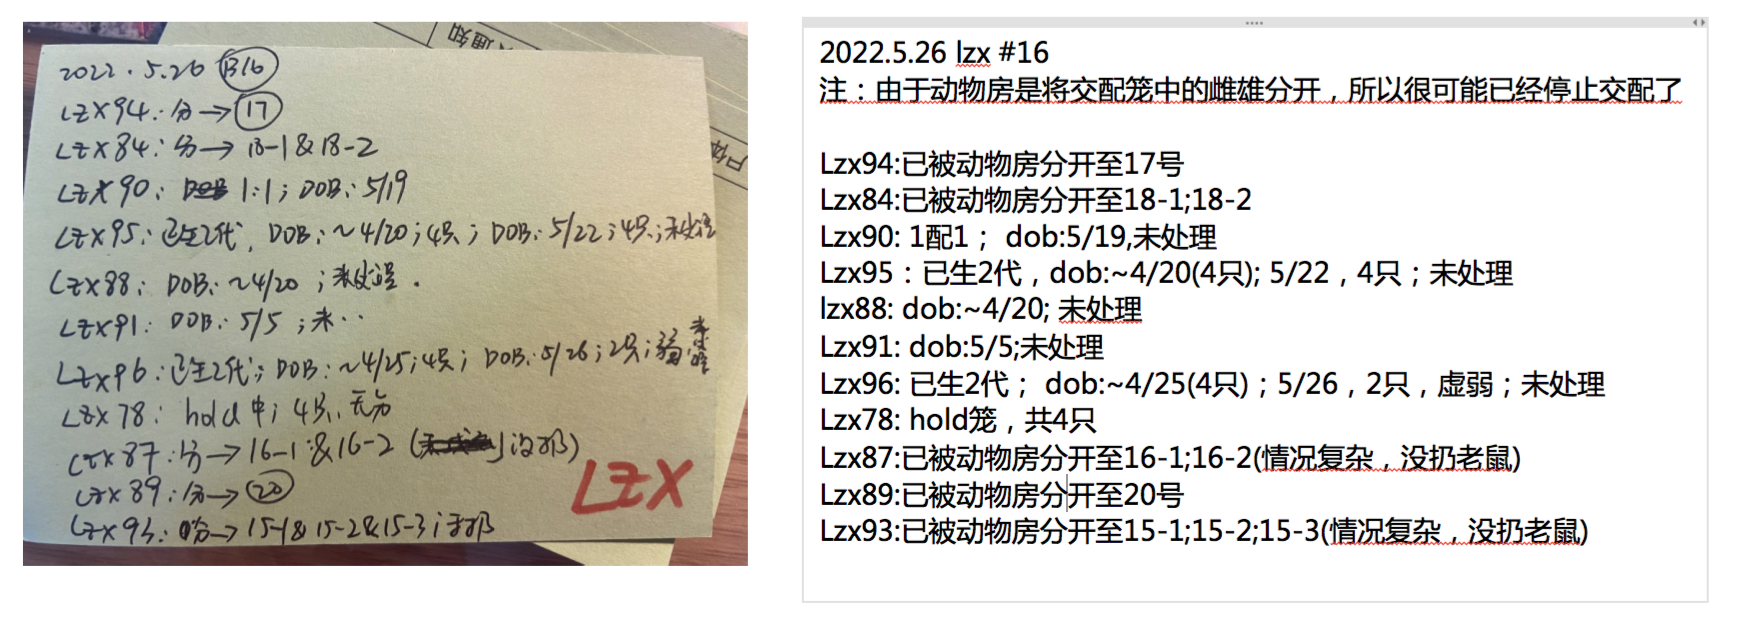 通知
户体
2022.5.26 B16
LZX94:分→17
LZX84:分→18-1&18-2
LZX90: 1:1; DOB: 5/19
LZX95:已生2代, DOB:~4/20;4只; DOB:5/22;4只;未处理
LZX88: DOB:~4/20;未处理.
LZX91: DOB:5/5;未··
LZX96:已生2代; DOB:~4/25;4只; DOB:5/26;2只;弱;未处理
LZX78: hold中;4只.
LZX87:分→16-1&16-2 (没扔)
LZX89:分→20
LZX93:分→15-1&15-2&15-3;没扔
LZX
2022.5.26 lzx #16
注：由于动物房是将交配笼中的雌雄分开，所以很可能已经停止交配了
Lzx94:已被动物房分开至17号
Lzx84:已被动物房分开至18-1;18-2
Lzx90: 1配1； dob:5/19,未处理
Lzx95：已生2代，dob:~4/20(4只); 5/22，4只；未处理
lzx88: dob:~4/20; 未处理
Lzx91: dob:5/5;未处理
Lzx96: 已生2代； dob:~4/25(4只)；5/26，2只，虚弱；未处理
Lzx78: hold笼，共4只
Lzx87:已被动物房分开至16-1;16-2(情况复杂，没扔老鼠)
Lzx89:已被动物房分开至20号
Lzx93:已被动物房分开至15-1;15-2;15-3(情况复杂，没扔老鼠)